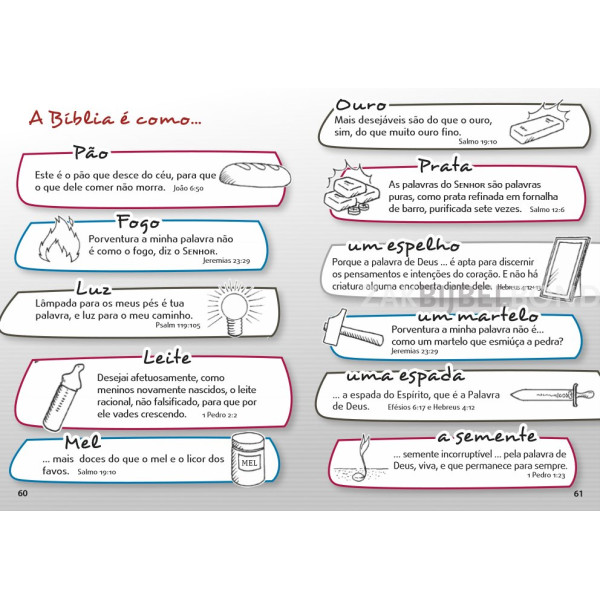 A Bíblia é como...
Pão
Este é o pão que desce do céu, para que
o que dele comer não morra. João 6:50
Fogo
Porventura a minha palavra não
é como o fogo, diz o SENHOR.
Jeremias 23:29
Luz
Lâmpada para os meus pés é tua
palavra, e luz para o meu caminho.
Psalm 119:105
Leite
Desejai afetuosamente, como
meninos novamente nascidos, o leite
racional, não falsificado, para que por
ele vades crescendo. 1 Pedro 2:2
Mel
... mais doces do que o mel e o licor dos
favos. Salmo 19:10
MEL
60
Ouro
Mais desejáveis são do que o ouro,
sim, do que muito ouro fino.
Salmo 19:10
Prata
As palavras do SENHOR são palavras
puras, como prata refinada em fornalha
de barro, purificada sete vezes. Salmo 12:6
um espelho
Porque a palavra de Deus ... é apta para discernir
os pensamentos e intenções do coração. E não há
criatura alguma encoberta diante dele. Hebreus 4:12-13
um martelo
Porventura a minha palavra não é...
como um martelo que esmiúça a pedra?
Jeremias 23:29
uma espada
... a espada do Espírito, que é a Palavra
de Deus. Efésios 6:17 e Hebreus 4:12
a semente
... semente incorruptível ... pela palavra de
Deus, viva, e que permanece para sempre.
1 Pedro 1:23
61